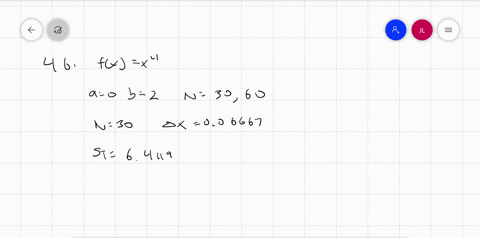 46. f(x) = x⁴
a=0 b=2 N = 30, 60
N=30 Δx = 0.06667
ST= 6.4119